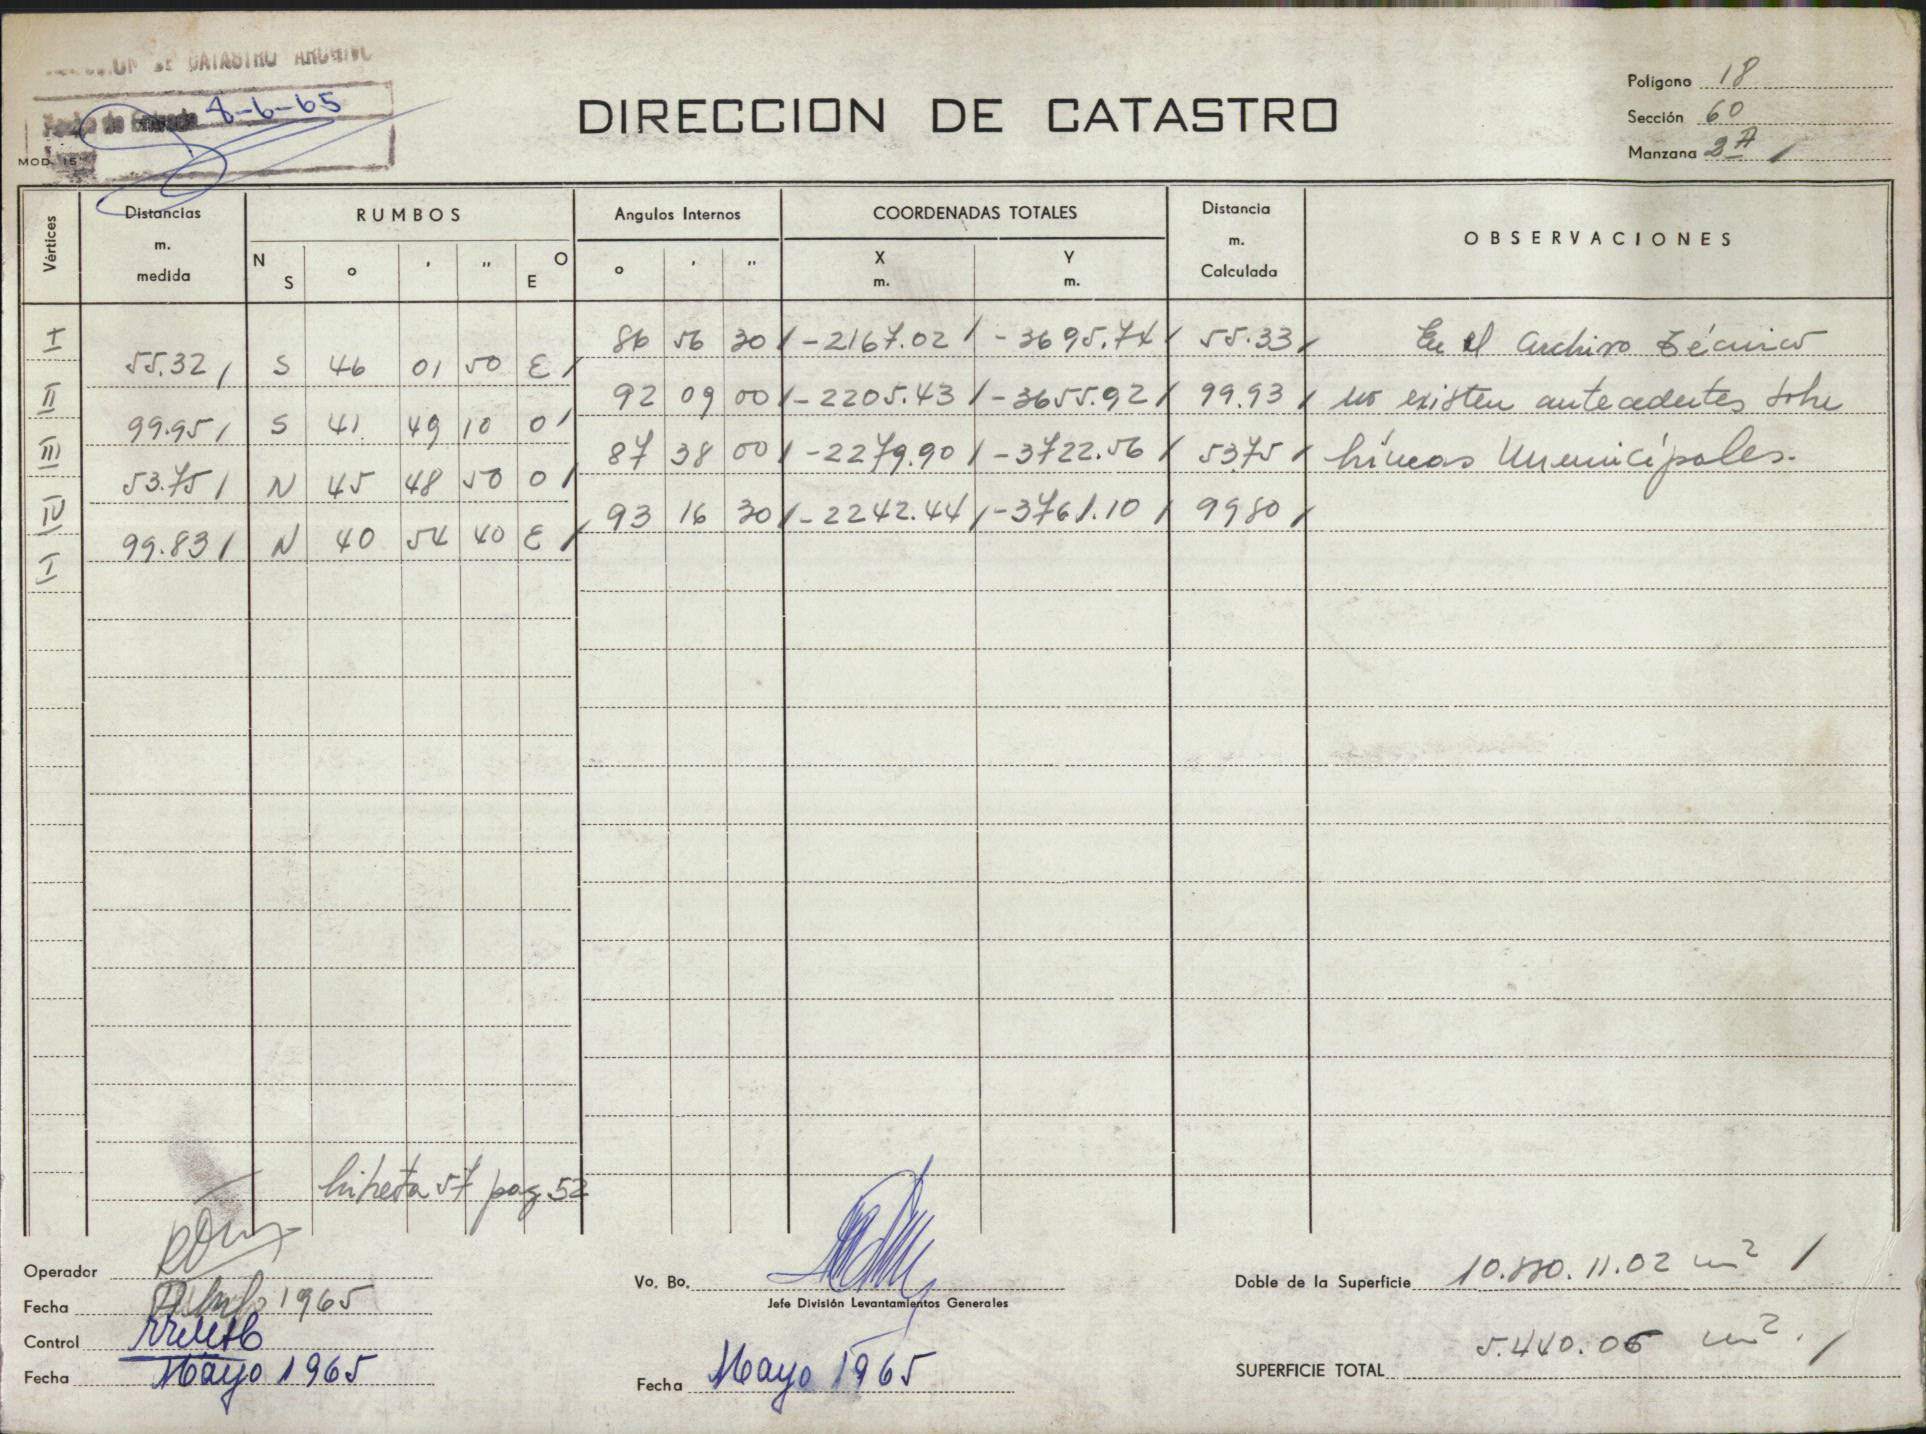 DIRECCION DE CATASTRO ARCHIVO
Fecha de Entrada 8-6-65
MOD. 15
DIRECCION DE CATASTRO
Polígono 18
Sección 60
Manzana 2A /
Vértices
Distancias m. medida
RUMBOS
N S ° ' " O E
Angulos Internos
° ' "
COORDENADAS TOTALES
X m.
Y m.
Distancia m. Calculada
OBSERVACIONES
I 86 56 30 / -2167.02 / -3695.74 / 55.33 / En el Archivo Técnico
55.32 / S 46 01 50 E /
II 92 09 00 / -2205.43 / -3655.92 / 99.93 / no existen antecedentes sobre
99.95 / S 41 49 10 O /
III 87 38 00 / -2279.90 / -3722.56 / 53.75 / Líneas Municipales.
53.75 / N 45 48 50 O /
IV 93 16 30 / -2242.44 / -3761.10 / 99 80 /
99.83 / N 40 54 40 E /
I
Libreta 57 pag. 52
Operador
Fecha 1965
Control
Fecha Mayo 1965
Vo. Bo.
Jefe División Levantamientos Generales
Fecha Mayo 1965
Doble de la Superficie 10.880.11.02 m2 /
SUPERFICIE TOTAL 5.440.06 m2. /